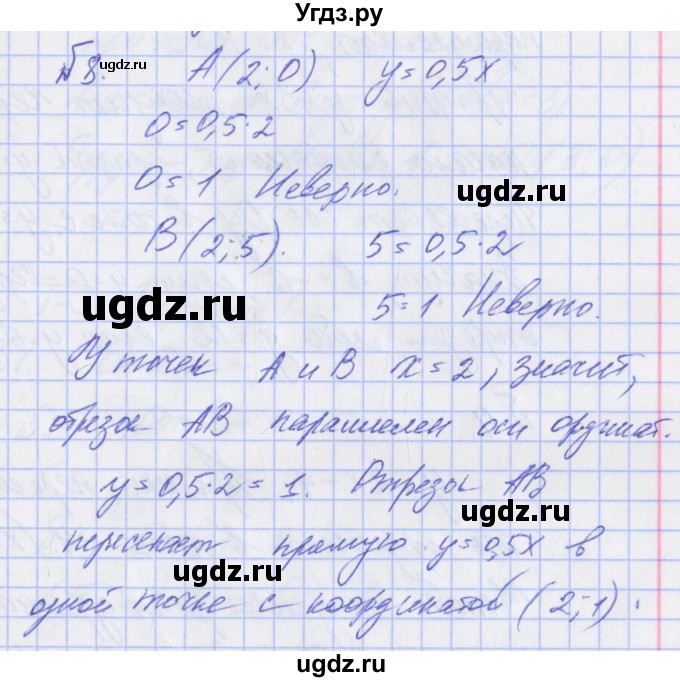 Угдз.ру
№8. A(2;0) y=0,5x
угдз.ру
0=0,5·2
0=1 Неверно.
ugdz.ru
B(2;5). 5=0,5·2
ugdz.ru
5=1 Неверно.
У точек A и B x=2, значит,
отрезок AB параллелен оси ординат.
y=0,5·2=1. Отрезок AB
ugdz.ru
пересекает прямую y=0,5x в
ugdz.ru
одной точке с координатой (2;1).
ugdz.ru